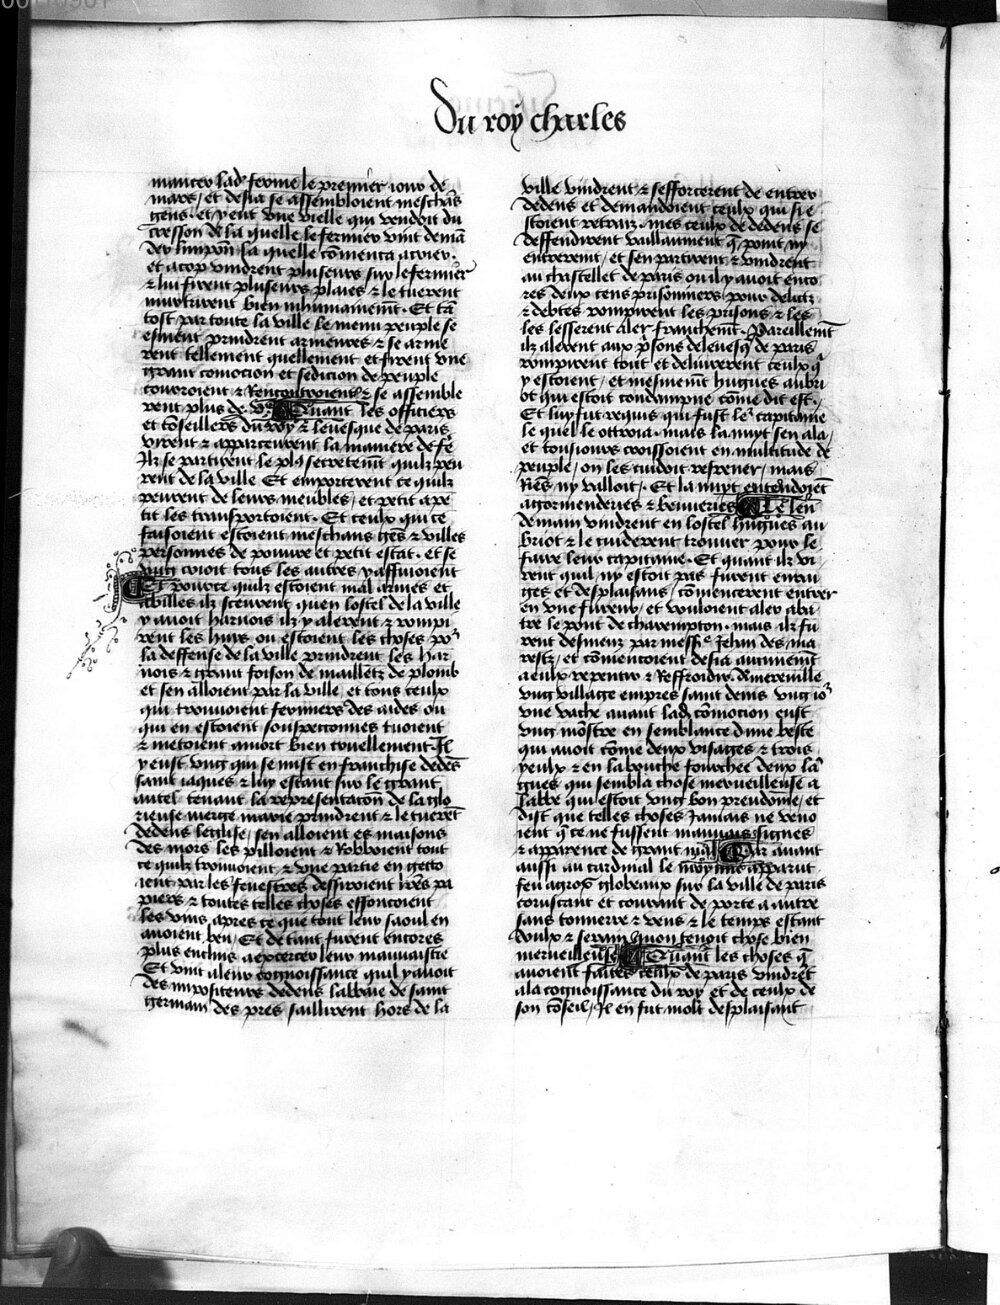 Du roy charles
mancer lad' ferme le premier iour de
mars / et desia se assembloient meschās
gens . et y eut vne vielle qui vendoit du
cresson de la quelle le fermier vint demā
der limpōn la quelle cōmenca a crier .
et acop vindrent plusieurs sur le fermier
⁊ lui firent plusieurs plaies ⁊ le tuerent
murtrirent bien inhumainemēt . Et tā
tost par toute la ville le menu peuple se
esmeut prindrent armeures ⁊ se arme
rent tellement quellement et firent vne
grant comocion et sedicion de peuple
couroient ⁊ ⁊ se assemble
rent plus de Quant les officiers
et cōseillers du roy ⁊ leuesque de paris
virent ⁊ apparceurent la maniere de fē
Ilz se partirent le pl9 secretemt quilz peu
rent de la ville Et emporterent ce quilz
peurent de leurs meubles / et petit a pe
tit les transportoient . Et ceulx qui ce
faisoient estoient meschans gēs ⁊ villes
personnes de pouure et petit estat . et se
vng crioit tous les autres y affuioient
Et pource quilz estoient mal armes et
abilles ilz sceurent quen lostel de la ville
y auoit harnois ilz y alerent ⁊ rompi
rent les huis ou estoient les choses por
la deffense de la ville prindrent les har
nois ⁊ grant foison de mailletz de plomb
et sen alloient par la ville et tous ceulx
qui trouuoient fermiers des aides ou
qui en estoient souspeconnes tuoient
⁊ metoient amort bien cruellement . Il
y eust vng qui se mist en franchise dedēs
saint iaques ⁊ luy estant sur le grant
autel tenant la representacōn de la glo
rieuse vierge marie prindrent ⁊ le tuerēt
dedens leglise / sen alloient es maisons
des mors les pilloient ⁊ Robboient tout
ce quilz trouuoient ⁊ vne partie en getto
ient par les fenestres dessiroient lr̄es pa
piers ⁊ toutes telles choses effoncoient
les vins apres ce que tout leur saoul en
auoient beu / Et de tant furent encores
plus enclins a exercer leur mauuaistie
Et vint aleur cognoissance quil y auoit
des impositeurs dedens labbaie de saint
germain des pres saillirent hors de la
ville vindrent ⁊ sefforcerent de entrer
dedens et demandoient ceulx qui si e
stoient retraiz . mes ceulx de dedens se
deffendirent vaillaument q̄ point ny
entrerent / et sen partirent ⁊ vindrent
au chastellet de paris ou il y auoit enco
res deux cens prisonniers pour delictz
⁊ debtes rompirent les prisons ⁊ les
les lesserent aler franchemt . Pareillemēt
ilz alerent aux p̄sons de leuesq̄ de paris
rompirent tout et deliurerent ceulx q̄
y estoient / et mesmemēt hugues aubri
ot qui estoit condampne cōme dit est .
Et luy fut requis qui fust ler capitaine
le quel le ottroia . mais la nuyt sen ala /
et tousiours croissoient en multitude de
peuple / on les cuidoit refrener / mais
Riēs ny valloit . Et la nuyt entendoiēt
a gormenderies ⁊ beuueries Le len
demain vindrent en lostel hugues au
briot ⁊ le cuiderent trouuer pour le
faire leur capitaine . Et quant ilz vi
rent quil ny estoit pas furent enrai
ges et desplaisans / cōmencerent entrer
en vne fureur / et vouloient aler aba
tre le pont de charempton . mais ilz fu
rent desmeuz par messe Jehan des ma
restz / et cōmencoient desia aucunemt
a eulx repentir ⁊ Reffroidir . Amereuille
vng village empres saint denis vng ior
vne vache auant lad comocion eust
vng mōstre en semblance dune beste
qui auoit cōme deux visages ⁊ trois
yeulx ⁊ en la bouche fourchee deux lā
gues qui sembla chose merueilleuse a
labbe qui estoit vng bon preudōme / et
dist que telles choses Jamais ne veno
ient q̄ ce ne fussent mauuais signes
⁊ apparence de grant mal Car auant
aussi au cardinal le moyne apparut
feu a gros globeaux sur la ville de paris
coruscant et courant de porte a autre
sans tonnerre ⁊ vens ⁊ le temps estant
doulx ⁊ serain quon tenoit chose bien
merueilleuse Quant les choses q̄
auoient faites ceulx de paris vindrēt
ala cognoissance du roy et de ceulx de
son cōseil / Il en fut molt desplaisant